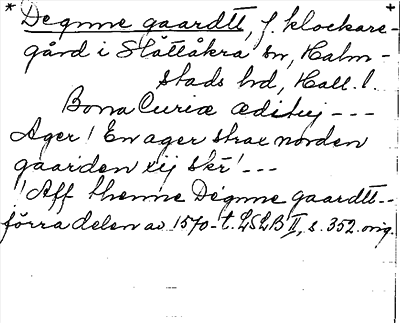 * Degnne gaardtt, f. klockare- +
gård i Slättåkra sn, Halm-
stads hd, Hall. l.
Bona Curiæ ædituj ---
Ager! En ager strax norden
gaarden xij skr' ---
! Aff thenne Degnne gaardtt --
förra delen av 1570-t. LSLB II, s. 352. orig.